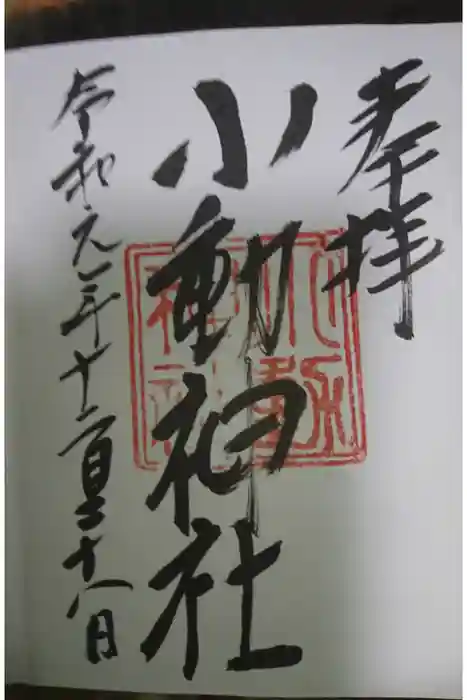 奉拝
小動神社
小動神社
令和元年十二月二十八日